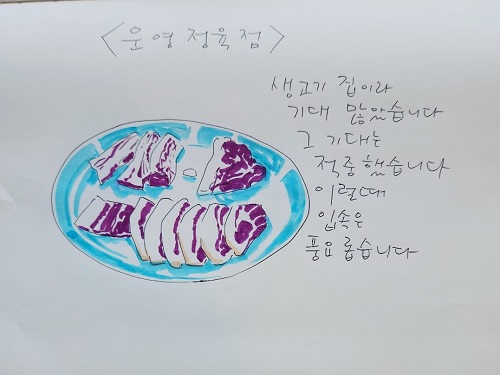 <운영정육점>
생고기 집이라
기대 많았습니다
그 기대는
적중했습니다
이럴때
입속은
풍요롭습니다